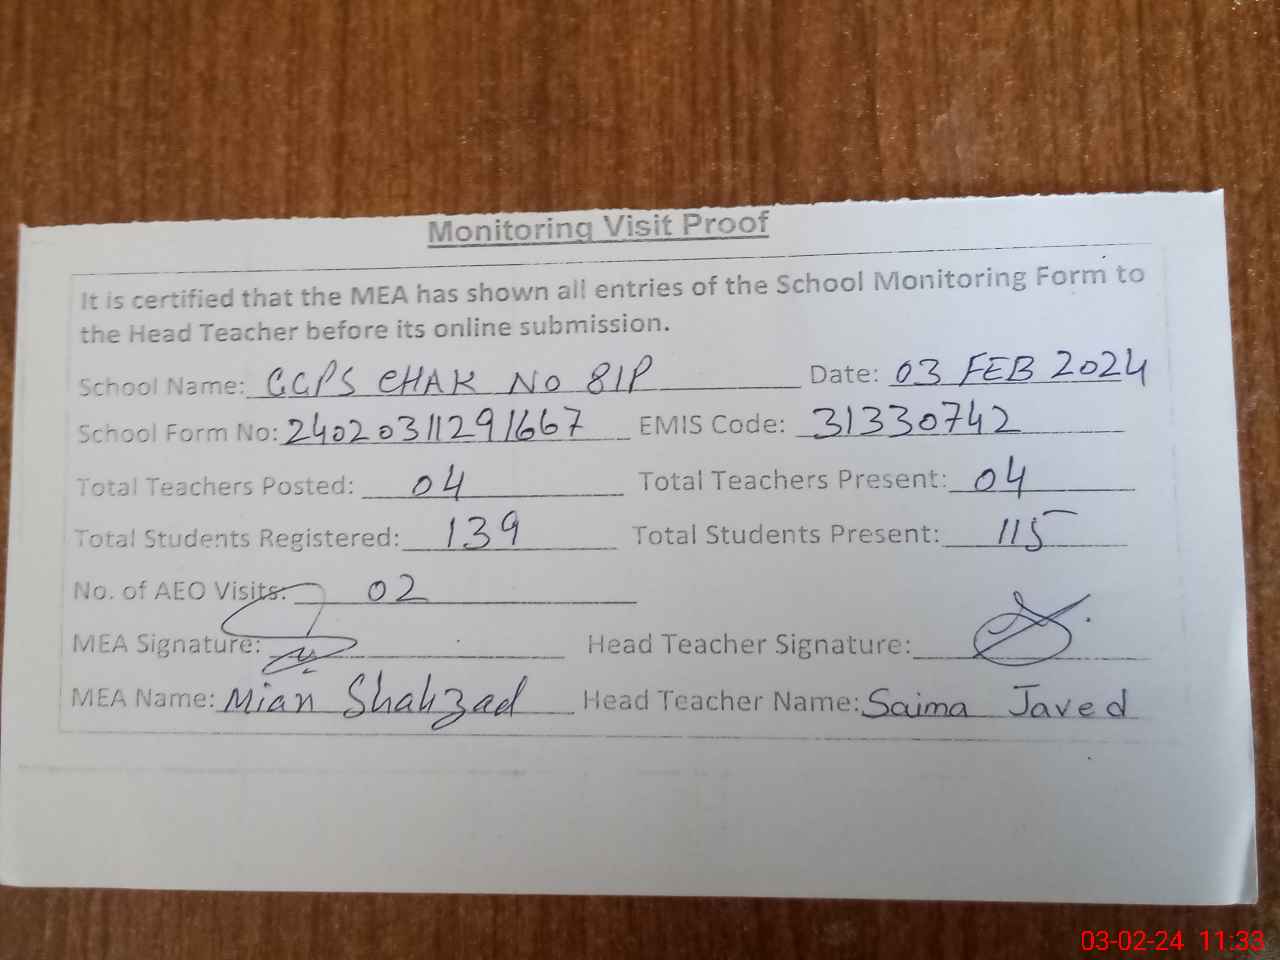 Monitoring Visit Proof
It is certified that the MEA has shown all entries of the School Monitoring Form to
the Head Teacher before its online submission.
School Name: GGPS CHAK NO 81P Date: 03 FEB 2024
School Form No: 24020311291667 EMIS Code: 31330742
Total Teachers Posted: 04 Total Teachers Present: 04
Total Students Registered: 139 Total Students Present: 115
No. of AEO Visits: 02
MEA Signature: Head Teacher Signature:
MEA Name: Mian Shahzad Head Teacher Name: Saima Javed
03-02-24 11:33